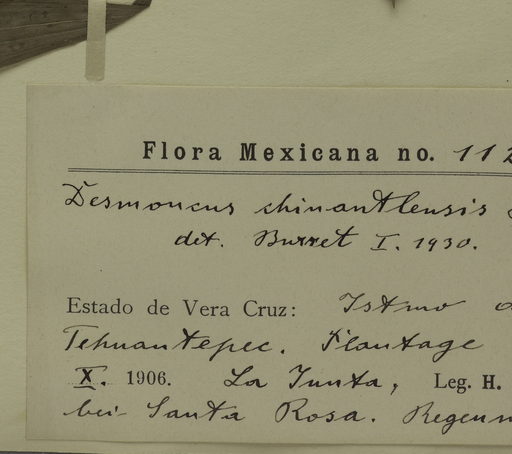 Flora Mexicana no. 112
Desmoncus chinantlensis
det. Burret I. 1930.
Estado de Vera Cruz: Istmo
Tehuantepec. Plantage
X. 1906. La Junta, Leg. H.
bei Santa Rosa. Regen